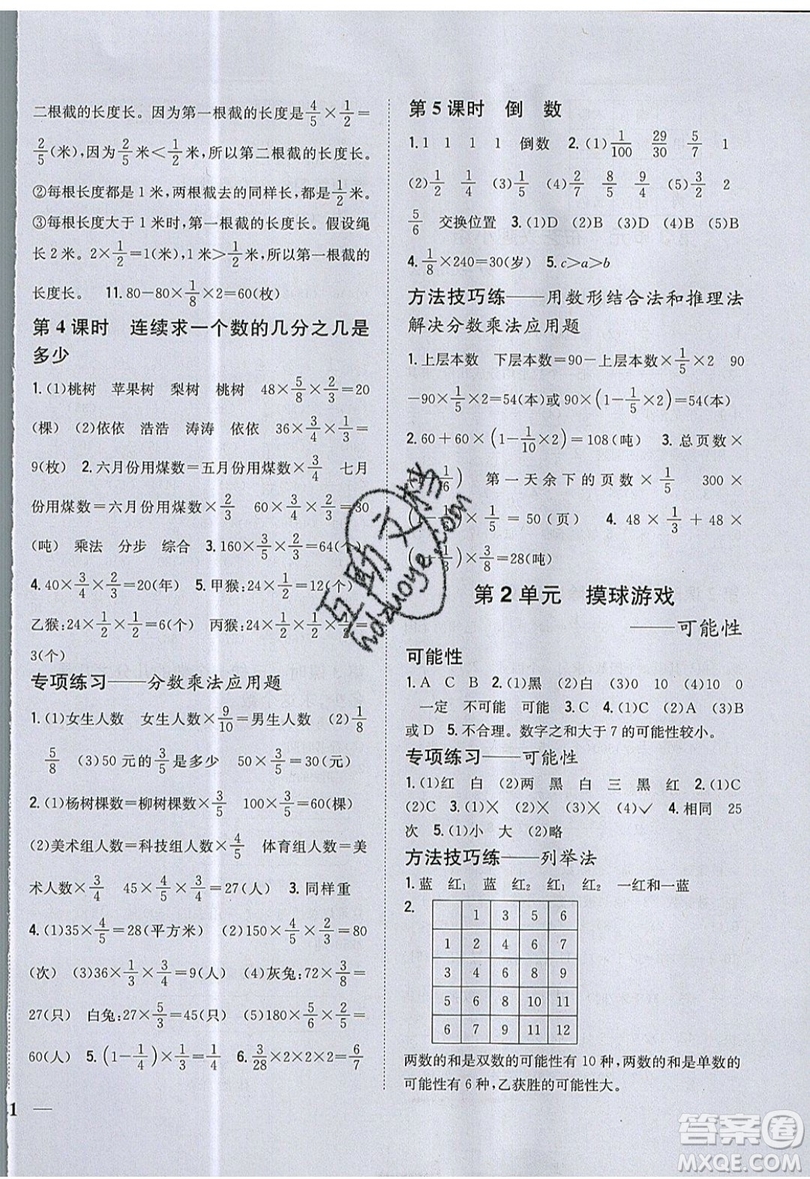 二根截的长度长。因为第一根截的长度是4/5×1/2=
2/5(米)，因为2/5米<1/2米，所以第二根截的长度长。
②每根长度都是1米，两根截去的同样长，都是1/2米。
③每根长度大于1米时，第一根截的长度长。假设绳
长2米。2×1/2=1(米)，因为1米>1/2米，所以第一根截的
长度长。 11.80-80×1/2×1/2=60(枚)
第4课时 连续求一个数的几分之几是
多少
1.(1)桃树 苹果树 梨树 桃树 48×5/8×2/3=20
(棵) (2)依依 浩浩 涛涛 依依 36×3/4×1/3=
9(枚) 2.六月份用煤数=五月份用煤数×3/4 七月
份用煤数=六月份用煤数×2/3 60×3/4×2/3=30
(吨) 乘法 分步 综合 3.160×3/5×2/3=64(人)
4.40×3/4×2/3=20(年) 5.甲猴:24×1/2=12(个)
乙猴:24×1/2×1/2=6(个) 丙猴:24×1/2×1/2×1/2=
3(个)
专项练习——分数乘法应用题
1.(1)女生人数 女生人数×9/10=男生人数 (2)1/8
5/8 (3)50元的3/5是多少 50×3/5=30(元)
2.(1)杨树棵数=柳树棵数×3/5 100×3/5=60(棵)
(2)美术组人数=科技组人数×4/5 体育组人数=美
术人数×3/4 45×4/5×3/4=27(人) 3.同样重
4.(1)35×4/5=28(平方米) (2)150×4/5×2/3=80
(次) (3)36×3/4×1/3=9(人) (4)灰兔:72×3/8=
27(只) 白兔:27×5/3=45(只) (5)180×5/6×2/5=
60(人) 5.(1-1/4)×1/7=3/28 6.2×2×2=8(人)
第5课时 倒 数
1.1 1 1 1 倒数 2.(1)1/100 29/30 5/7 1
(2)1/2 1/2 2/7 8/5 9/4 3.(1)D (2)B (3)B (4)
5/6 交换位置 (3)(1)D (2)C (3)A (4)C (5)B
4.1/8×240=30(岁) 5.c>a>b
方法技巧练——用数形结合法和推理法
解决分数乘法应用题
1.上层本数 下层本数=上层本数×1/5×2 90
-90×1/5×2=54(本)或90×(1-1/5×2)=54(本)
2.60+60×(1-1/10×2)=108(吨) 3.总页数×
(1-1/6) 第一天余下的页数×1/5 300×
(1-1/6)×1/5=50(页) 4.48×1/3+48×
(1-1/3)×3/8=28(吨)
第2单元 摸球游戏
——可能性
可能性
1.A C B 2.(1)黑 (2)白 (3)10 (4)10 0
一定 不可能 可能 3.C 4.(1)B (2)A (3)C
或D 5.不合理。数字之和大于7的可能性较小。
专项练习——可能性
1.(1)红 白 (2)两 黑 白 三 黑 红 白
2.(1)C (2)C (3)B 3.✓ ✓ × ✓ 4.相同 25
次 5.(1)小 大 (2)略
方法技巧练——列举法
1.蓝 红₁ 红₂ 蓝 红₁ 红₂ 一红和一蓝
2.
1 3 5 6
1 2 4 6 7
4 5 7 9 10
5 6 8 10 11
6 7 9 11 12
两数的和是双数的可能性有10种，两数的和是单数的
可能性有6种，乙获胜的可能性大。
互助文档
hdzuoye.com
答案圈
MXQE.COM